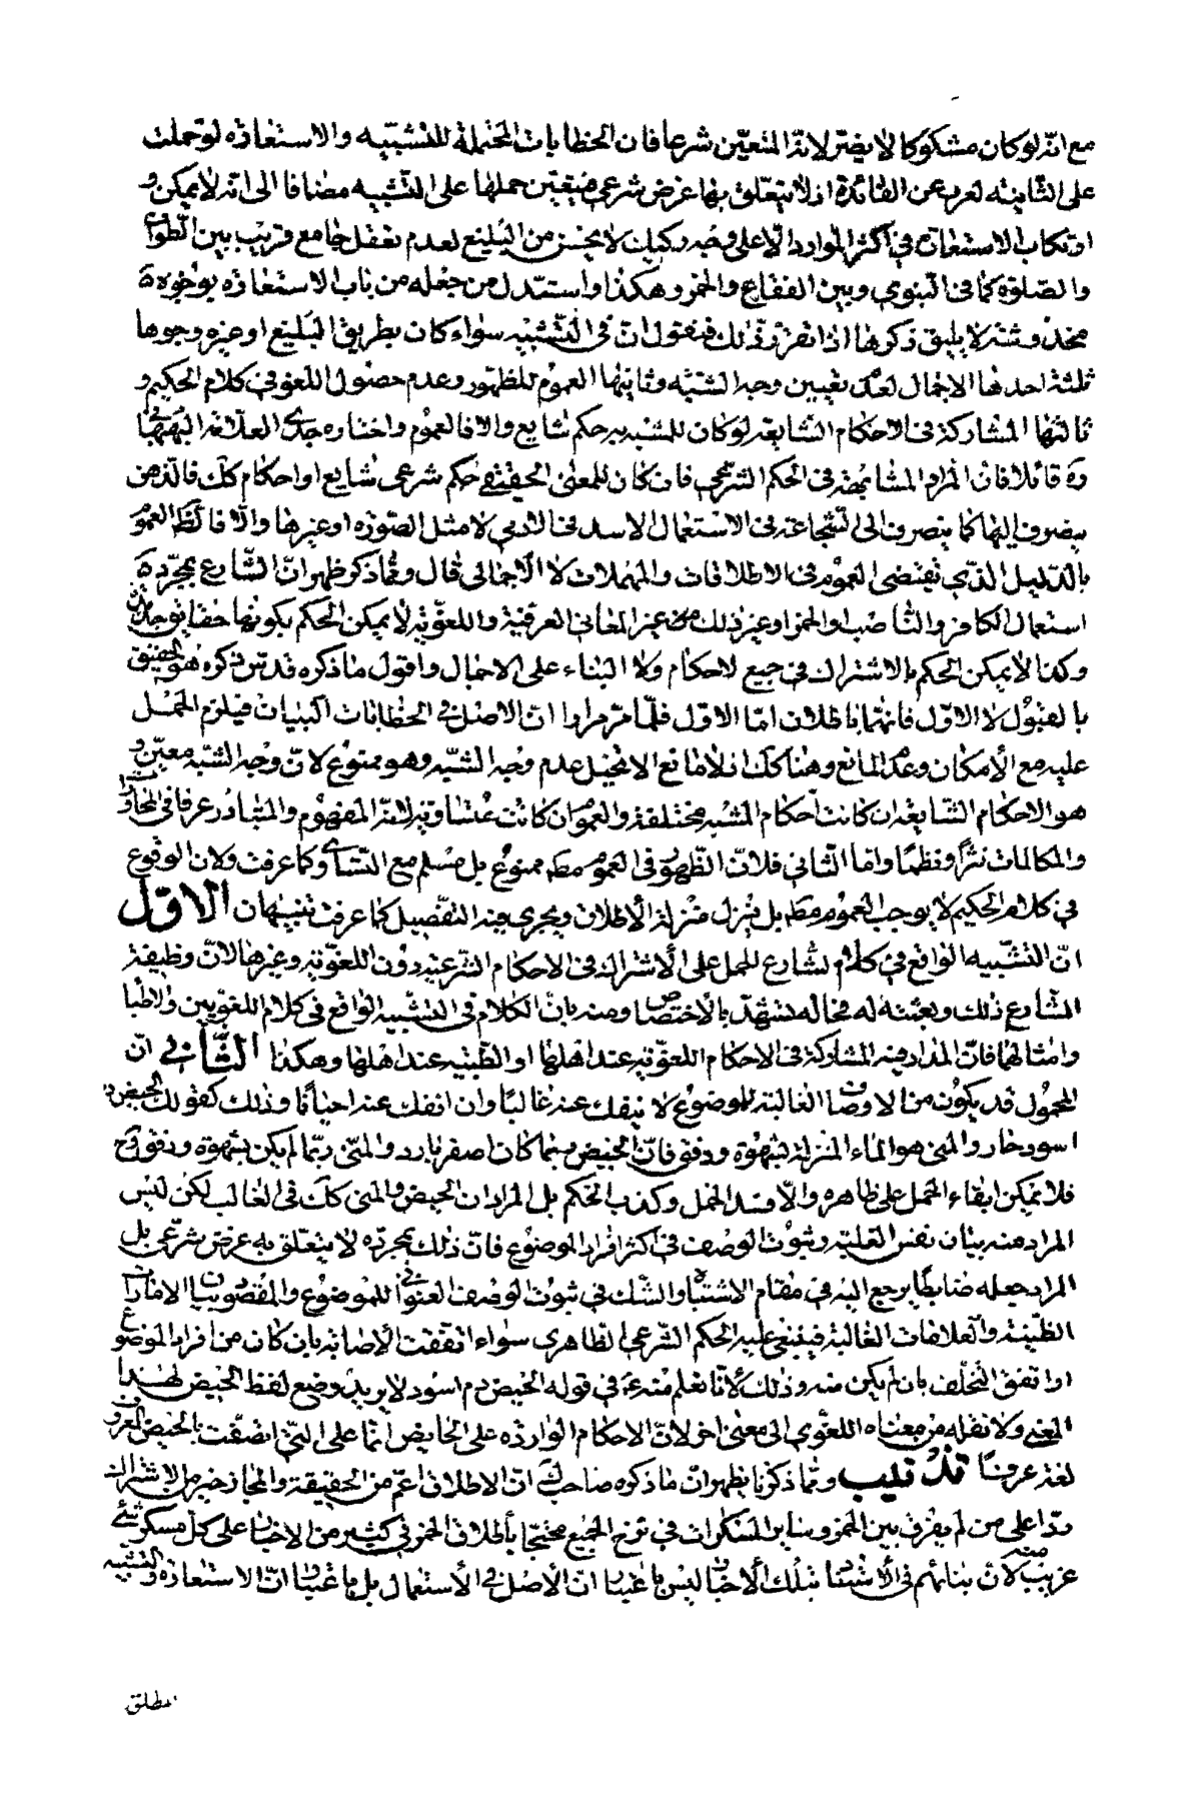 مع انّه لو كان مشكوكا لا يضرّ لانّه المتعيّن شرعا فان الخطابات المحتملة للتشبيه والاستعاذه لو حملت
على الثانيه لعرب عن الفائدة اذ لا يتعلّق بها غرض شرعي فيتعيّن حملها على التشبيه مضافا الى انّه لا يمكن و
ارتكاب الاستعارة في اكثر الموارد الّا على وجه ركيك لا يحسن من البليغ لعدم تعقل جامع قريب بين الطواف
والصّلوة كما في النبوي وبين الفقاع والخمر وهكذا واستدل من جعله من باب الاستعاذه بوجوه
مخدوشة لا يليق ذكرها اذا تقرّر ذلك فنقول انّ في التّشبيه سواء كان بطريق البليغ او غيره وجوها
ثلثة احدها الاجمال لعدم تعيين وجه الشّبه وثانيها العموم للظهور وعدم حصول اللغو في كلام الحكيم و
ثالثها المشاركة في الاحكام الشّايعة لو كان للمشبه به حكم شايع والّا فالعموم واختاره جدي العلّامة البهبهاني
ره قائلا فان المراد المشابهة في الحكم الشرعي فان كان للمعنى الحقيقي حكم شرعي شايع او احكام كك فالذهن
ينصرف اليها كما ينصرف الى الشّجاعة في الاستعمال الاسد في الادمي لا مثل الصّورة او غيرها والّا فالظ العموم
بالدّليل الذي يقتضي العموم في الاطلاقات والمهملات لا الاجمالي قال وممّا ذكر ظهر انّ الشّارع بمجرّده
استعمال الكافر والنّاصب والخمر او غير ذلك من غير المعاني العرفية واللغويّة لا يمكن الحكم بكونها حقايق جديدة
وكذا لا يمكن الحكم بالاشتراك في جميع الاحكام ولا البناء على الاجمال واقول ما ذكره قدس ذكره هو الحقيق
بالقبول لا الاوّل فانّهما باطلان امّا الاوّل فلما مرّ مرارا انّ الاصل في الخطابات البيان فيلزم الحمل
عليه مع الامكان وعدم المانع وهنا كك اذ لا مانع الا تخيل عدم وجه الشبه وهو ممنوع لانّ وجه الشبه معيّن و
هو الاحكام الشّايعة ان كانت احكام المشبه مختلفة والعموم ان كانت متساوية لانّه المفهوم والمتبادر عرفا في المحاورات
والمكالمات نثرًا ونظمًا وامّا الثاني فلانّ الظّهور في العموم مط ممنوع بل مسلم مع التساوي كما عرفت ولان الوقوع
في كلام الحكيم لا يوجب العموم مط بل ينزل منزلة الاطلاق ويجري فيه التفصيل كما عرفت تنبيهان الاوّل
انّ التشبيه الواقع في كلام الشارع للحمل على الاشتراك في الاحكام الشرعيّة دون اللغويّة وغيرها لانّ وظيفة
الشّارع ذلك وبعثته له فحاله يشهد بالاختصاص ومنه بان الكلام في التشبيه الواقع في كلام اللغويين والاطبا
وامثالها فانّ المدار فيه المشاركة في الاحكام اللغويّة عند اهلها او الطّبية عند اهلها وهكذا الثّاني انّ
المحمول قد يكون من الاوصاف الغالبة للموضوع لا ينفك عنه غالبًا وان انفك عنه احيانًا وذلك كقولك الحيض دم
اسود حار والمني هو الماء المنزل بشهوة ودفق فانّ الحيض ربما كان اصفر بارد والمنى ربّما لم يكن بشهوة ودفق وح
فلا يمكن ابقاء الحمل على ظاهره والّا فسد الحمل وكذب الحكم بل المراد ان الحيض والمنى كك في الغالب لكن ليس
المراد منه بيان نفس الغلبة وثبوت الوصف في اكثر افراد الموضوع فانّ ذلك بمجرّده لا يتعلّق به غرض شرعي بل
المراد جعله ضابطًا يرجع اليه في مقام الاشتباه والشّك في ثبوت الوصف العنواني للموضوع والمقصود بيان الامارات
الظنّية والعلامات الغالبة فيبتنى عليه الحكم الشّرعي الظاهري سواء اتفقت الاصابة بان كان من افراد الموضوع
او اتفق التخلّف بان لم يكن منه وذلك لانّا نعلم منه ع في قوله الحيض دم اسود لا يريد وضع لفظ الحيض لهذا
المعنى ولا نقله من معناه اللغوي الى معنى اخر لانّ الاحكام الوارده على الحايض انما على التي اتصفت بالحيض المعروف
لغة عرفًا تذنيب وممّا ذكرنا يظهر انّ ما ذكره صاحب ك انّ الاطلاق اعم من الحقيقة والمجاز خير من الاشتراك
ردّا على من لم يفرق بين الخمر وساير المسكرات في نزح الجميع محتجّا باطلاق الخمر في كثير من الاخبار على كل مسكر شئ
غريب منه لانّ بنائهم في الاستدلال بتلك الاخبار ليس باعتبار انّ الاصل في الاستعمال بل باعتبار انّ الاستعاذة والتشبيه
مطلق